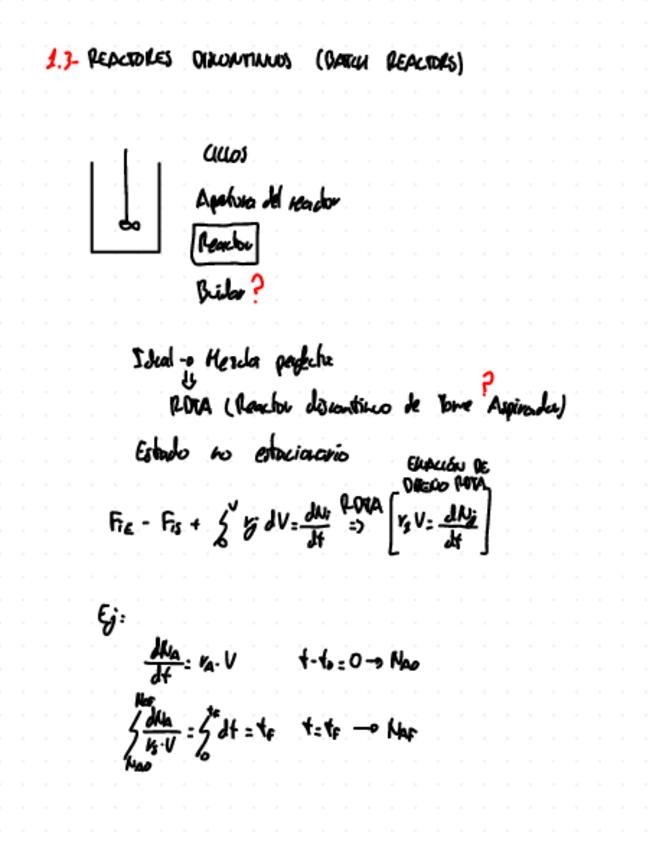 1.3- REACTORES DISCONTINUOS (BATCH REACTORS)
CICLOS
Apertura del reactor
Reactor
?
Ideal → Mezcla perfecta
⇓ ?
RDTA (Reactor discontinuo de Tanque Aspirador)
Estado no estacionario
ECUACIÓN DE
DISEÑO RDTA
F_iE - F_iS + ∫_0^V r_j dV = dN_i/dt RDTA ⇒ [r_j V = dN_j/dt]
Ej:
dN_A/dt = r_A · V t-t_0 = 0 → N_A0
∫_{N_A0}^{N_AF} dN_A/(r_j · V) = ∫_0^{t_F} dt = t_F t = t_F → N_AF